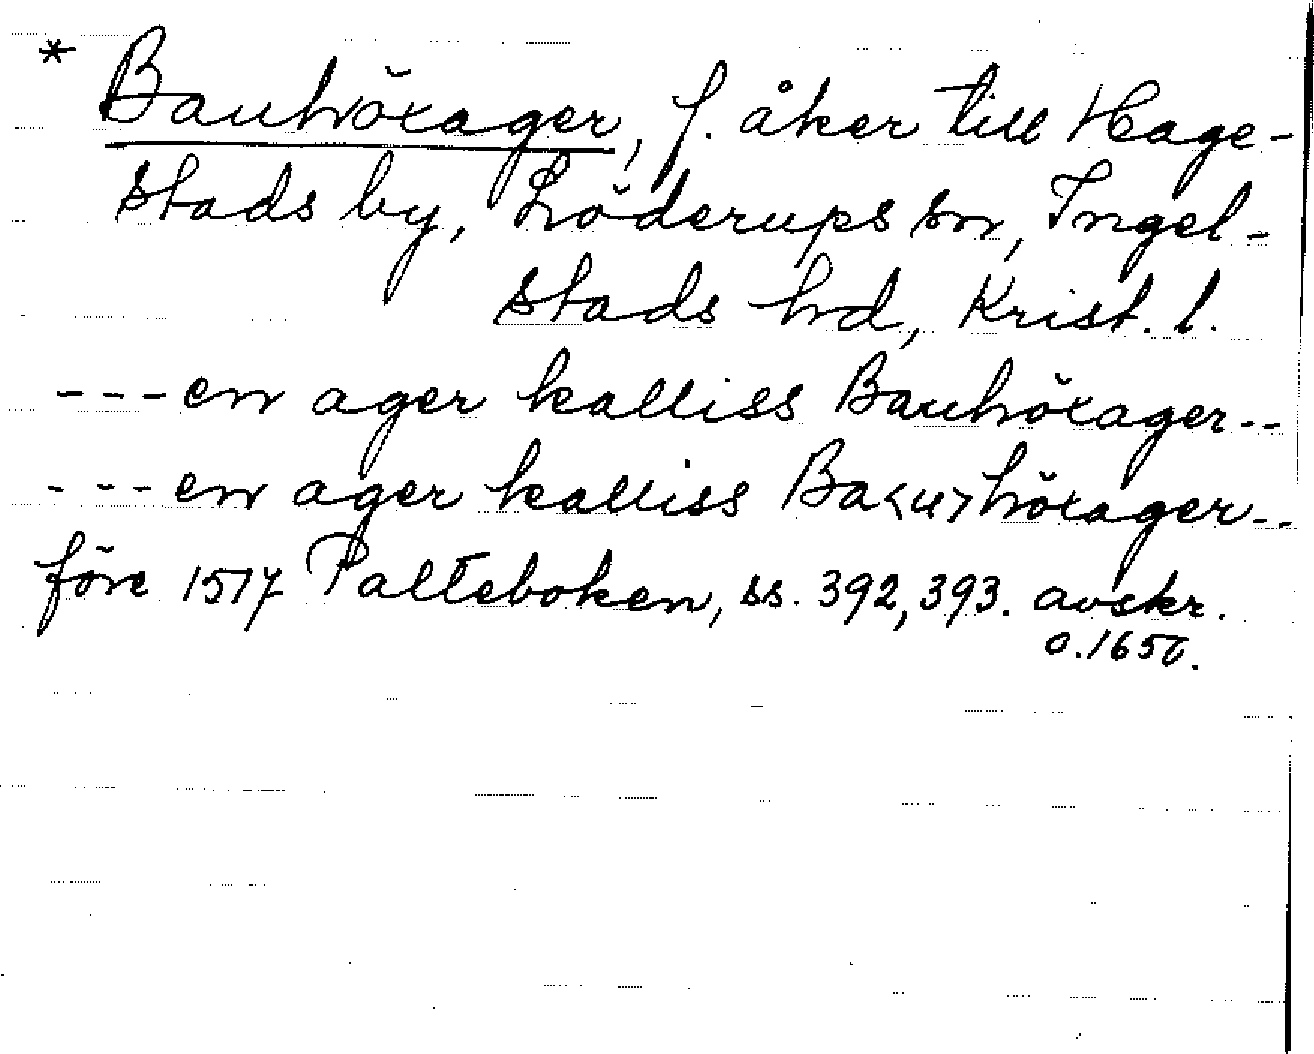 * Bauhöxager, f. åker till Hage-
stads by, Löderups sn, Ingel-
stads hd, Krist. l.
---en ager kalliss Bauhöxager--
---en ager kalliss Ba<u>höxager--
före 1517 Palteboken, ss. 392, 393. avskr.
o. 1650.